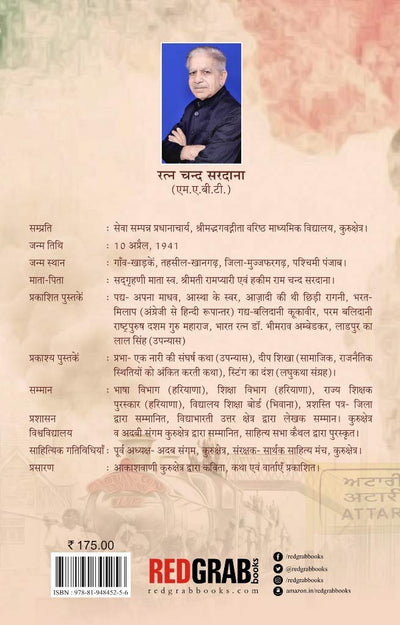 रत्न चन्द सरदाना
(एम.ए.बी.टी.)
सम्प्रति : सेवा सम्पन्न प्रधानाचार्य, श्रीमद्भगवद्गीता वरिष्ठ माध्यमिक विद्यालय, कुरुक्षेत्र।
जन्म तिथि : 10 अप्रैल, 1941
जन्म स्थान : गाँव-खाड़कें, तहसील-खानगढ़, जिला-मुज्जफरगढ़, पश्चिमी पंजाब।
माता-पिता : सद्गृहणी माता स्व. श्रीमती रामप्यारी एवं हकीम राम चन्द सरदाना।
प्रकाशित पुस्तकें : पद्य- अपना माधव, आस्था के स्वर, आज़ादी की थी छिड़ी रागनी, भरत-
मिलाप (अंग्रेजी से हिन्दी रूपान्तर) गद्य-बलिदानी कूकावीर, परम बलिदानी
राष्ट्रपुरुष दशम गुरु महाराज, भारत रत्न डॉ. भीमराव अम्बेडकर, लाडपुर का
लाल सिंह (उपन्यास)
प्रकाश्य पुस्तकें : प्रभा- एक नारी की संघर्ष कथा (उपन्यास), दीप शिखा (सामाजिक, राजनैतिक
स्थितियों को अंकित करती कथा), स्टिंग का दंश (लघुकथा संग्रह)।
सम्मान : भाषा विभाग (हरियाणा), शिक्षा विभाग (हरियाणा), राज्य शिक्षक
पुरस्कार (हरियाणा), विद्यालय शिक्षा बोर्ड (भिवाना), प्रशस्ति पत्र- जिला
प्रशासन द्वारा सम्मानित, विद्याभारती उत्तर क्षेत्र द्वारा लेखक सम्मान। कुरुक्षेत्र
विश्वविद्यालय व अदबी संगम कुरुक्षेत्र द्वारा सम्मानित, साहित्य सभा कैंथल द्वारा पुरस्कृत।
साहित्यिक गतिविधियाँ : पूर्व अध्यक्ष- अदब संगम, कुरुक्षेत्र, संरक्षक- सार्थक साहित्य मंच, कुरुक्षेत्र।
प्रसारण : आकाशवाणी कुरुक्षेत्र द्वारा कविता, कथा एवं वार्ताएँ प्रकाशित।
ਅਟਾਰੀ
अटारी
ATTAR
₹ 175.00
ISBN : 978-81-948452-5-6
REDGRAB books
redgrabbooks.com
/redgrabbooks
@redgrabbooks
/redgrabbooks
amazon.in/redgrabbooks